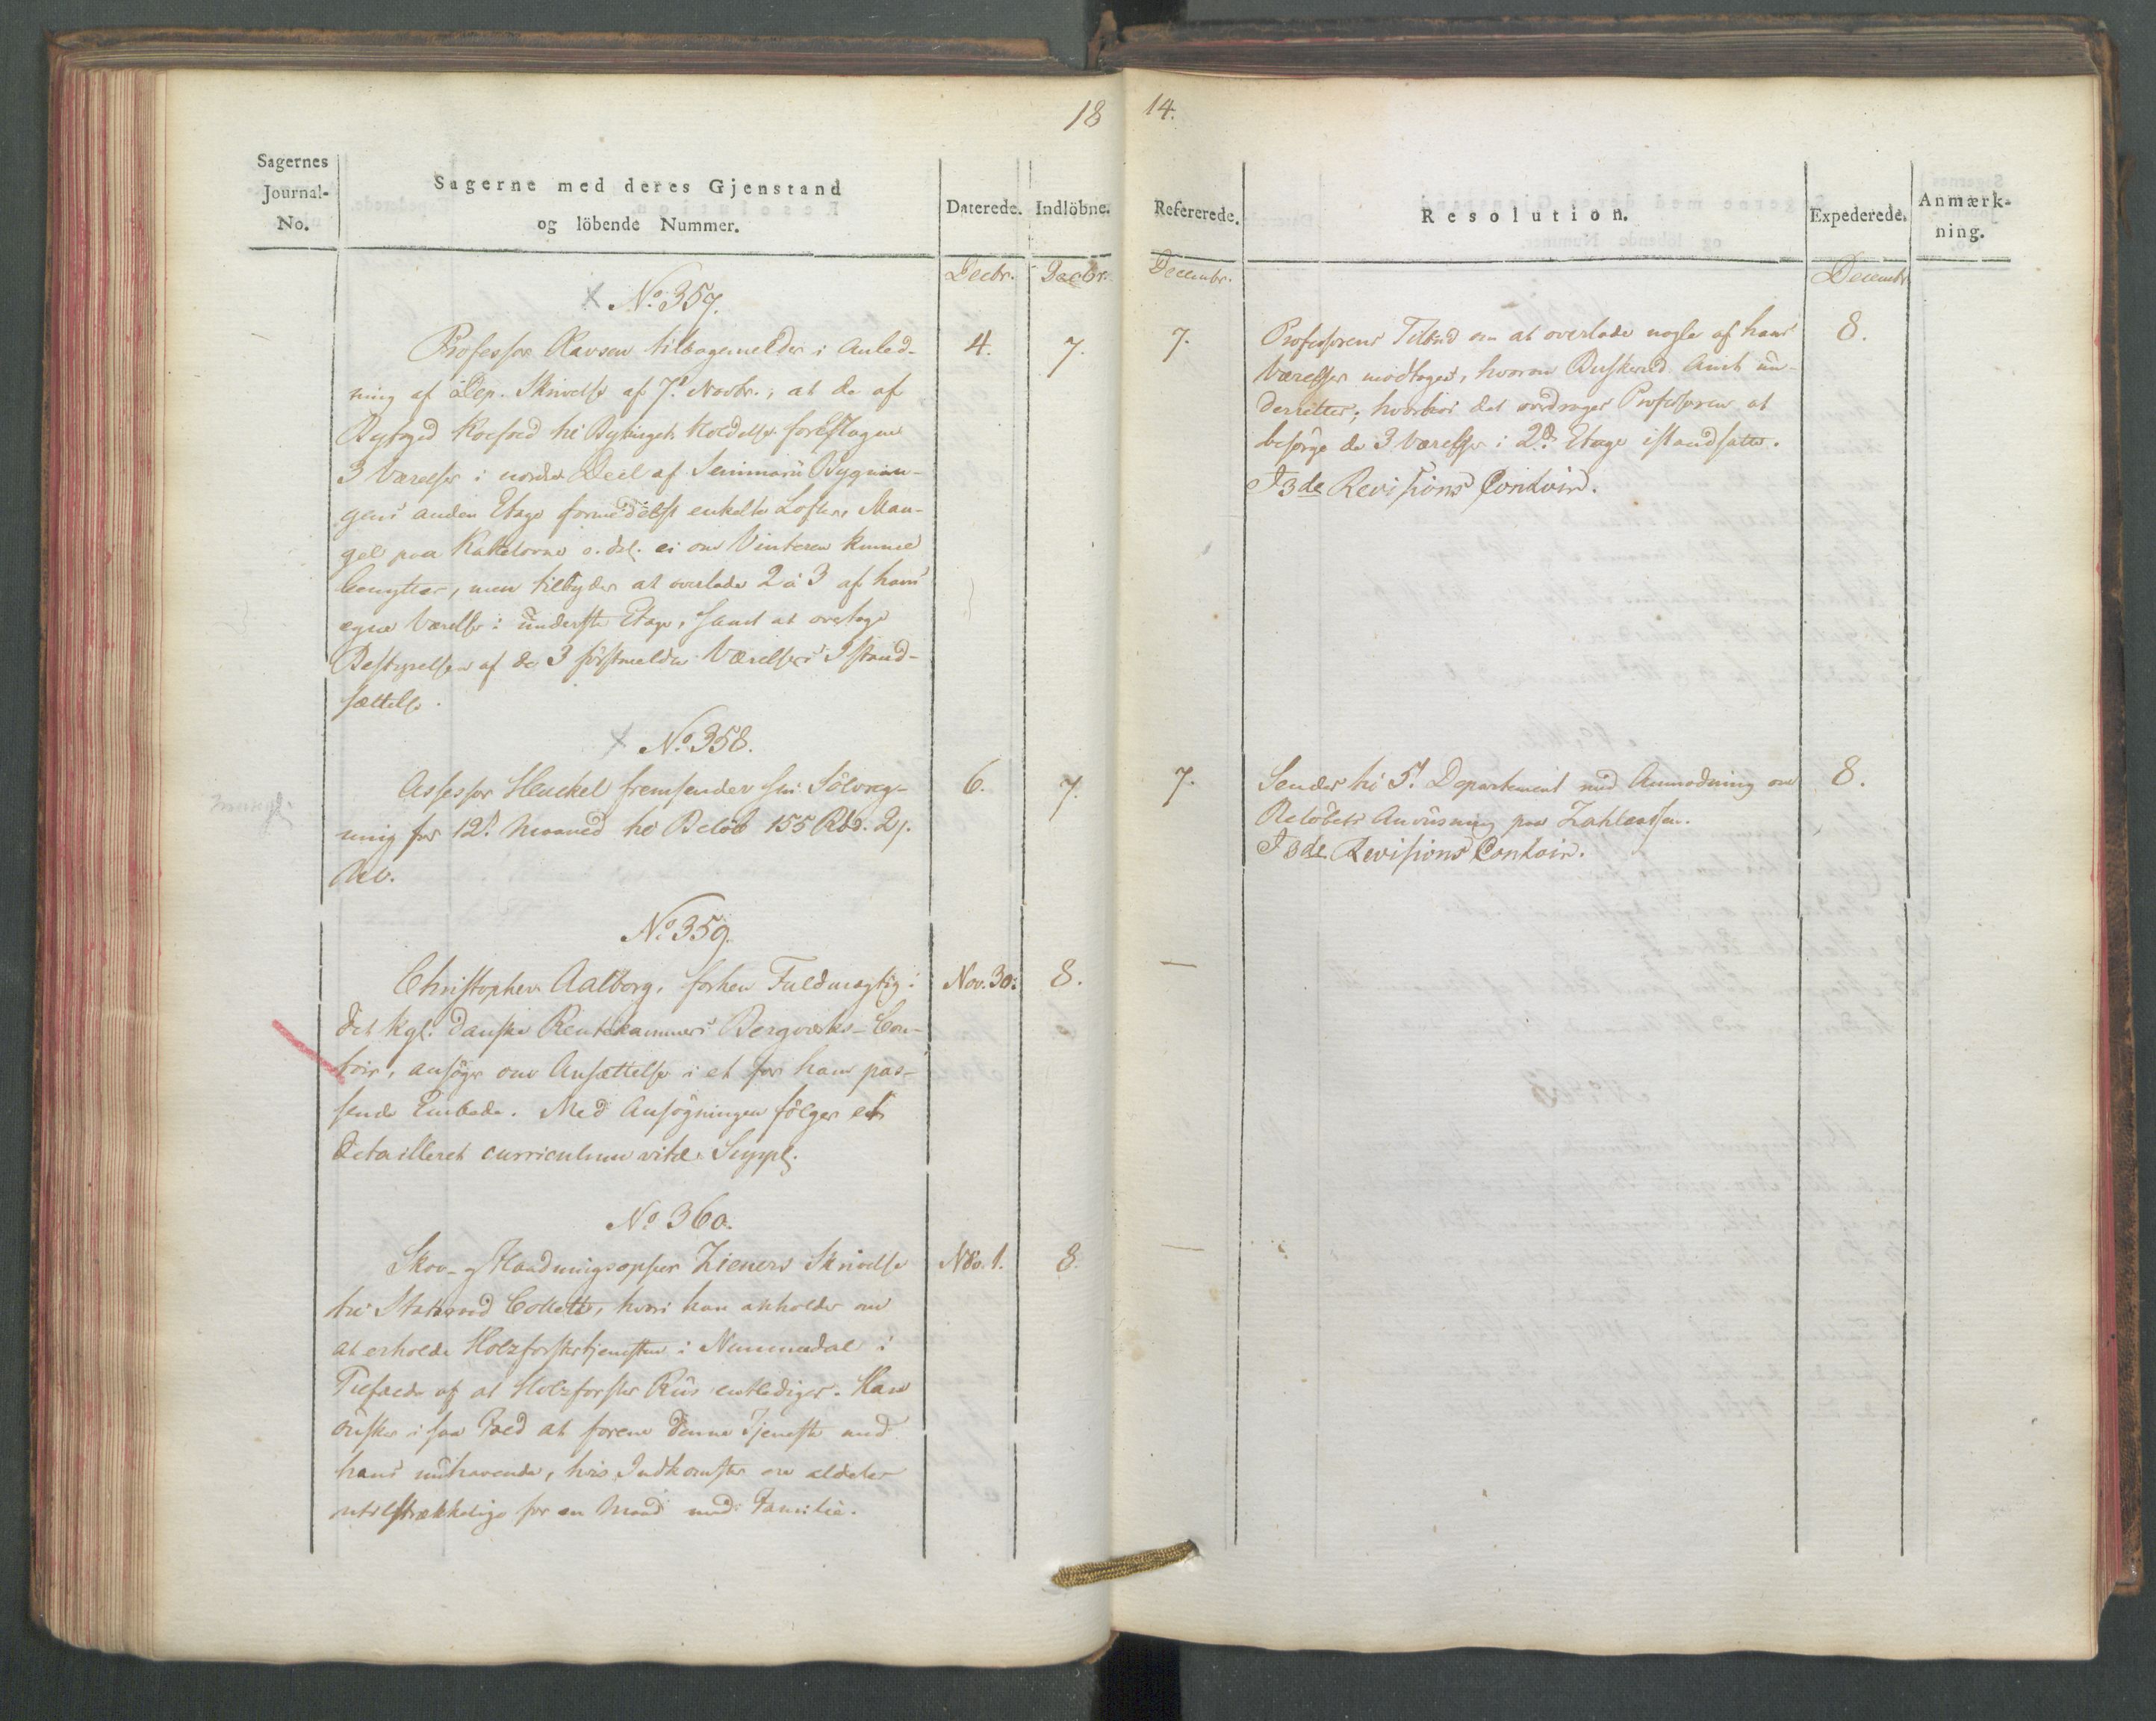 18
14.
Sagernes
Journal-
No.
Sagerne med deres Gjenstand
og löbende Nummer.
Daterede.
Indlöbne.
Refererede.
Resolution.
Expederede.
Anmærk-
ning.
Decbr.
Decbr.
Decembr.
Decembr
No. 357.
Professor Ravsen tilbagemelder i Anled-
ning af Dep. Skrivelse af 7. Novbr., at de af
Byfoged Koefoed til Bytingets Holdelse foreslagne
3 Værelser i nordre Deel af Seminarii Bygnin-
gens anden Etage formedelst enkelte Lofter, Man-
gel paa Kakelovne o. dsl. ei om Vinteren kunne
benyttes, men tilbyder at overlade 2 à 3 af hans
egne Værelser i underste Etage, samt at overtage
Bestyrelsen af de 3 förstmeldte Værelsers Istand-
sættelse.
4.
7.
7.
Professorens Tilbud om at overlade nogle af hans
Værelser modtages, hvorom Buskerud Amt un-
derretter; hvorhos det overdrages Professoren at
besörge de 3 Værelser i 2d Etage istandsatte.
I 3de Revisions Contoir.
8.
No. 358.
Assessor Henckel fremsender sin Sölvreg-
ning for 12t Maaned til Belöb 155 Rbd. 2 s.
N.V.
6.
7.
7.
Sendes til 5t Departement med Anmodning om
Belöbets Anviisning paa Zahlcassen.
I 3de Revisions Contoir.
8.
No. 359.
Christopher Aalborg, forhen Fuldmægtig i
det Kgl. danske Rentekammers Bergværks-Con-
toir, ansöger om Ansættelse i et for ham pas-
sende Embede. Med Ansögningen fölger et
detailleret curriculum vitæ. Suppl.
Nov. 30.
8.
—
No. 360.
Skov- og Skrivelse
til Statsraad Collett, hvori han anholder om
at erholde Holzforstertjenesten i Nummedal i
Tilfælde af at Holzforster Riis entlediges. Han
önsker i saa Fald at forene denne Tjeneste med
hans nuhavende, hvis Indkomster ere aldeles
utilstrækkelige for en Mand med Familie.
8.
—